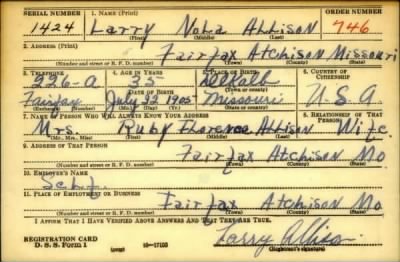 SERIAL NUMBER 1. NAME (Print) ORDER NUMBER
1424 Larry Nola Allison 746
(First) (Middle) (Last)
2. ADDRESS (Print)
Fairfax Atchison Missouri
(Number and street or R. F. D. number) (Town) (County) (State)
3. TELEPHONE 4. AGE IN YEARS 5. PLACE OF BIRTH 6. COUNTRY OF CITIZENSHIP
226-A 35 DeKalb
DATE OF BIRTH (Town or county)
Fairfax July 1905 Missouri U.S.A.
(Exchange) (Number) (Mo.) (Day) (Yr.) (State or country)
7. NAME OF PERSON WHO WILL ALWAYS KNOW YOUR ADDRESS 8. RELATIONSHIP OF THAT PERSON
Mrs. Ruby Florence Allison Wife
(Mr., Mrs., Miss) (First) (Middle) (Last)
9. ADDRESS OF THAT PERSON
Fairfax Atchison Mo.
(Number and street or R. F. D. number) (Town) (County) (State)
10. EMPLOYER'S NAME
Self
11. PLACE OF EMPLOYMENT OR BUSINESS
Fairfax Atchison Mo
(Number and street or R. F. D. number) (Town) (County) (State)
I AFFIRM THAT I HAVE VERIFIED ABOVE ANSWERS AND THAT THEY ARE TRUE.
REGISTRATION CARD
D. S. S. Form 1 (over) 16-17105 Larry Allison
(Registrant's signature)